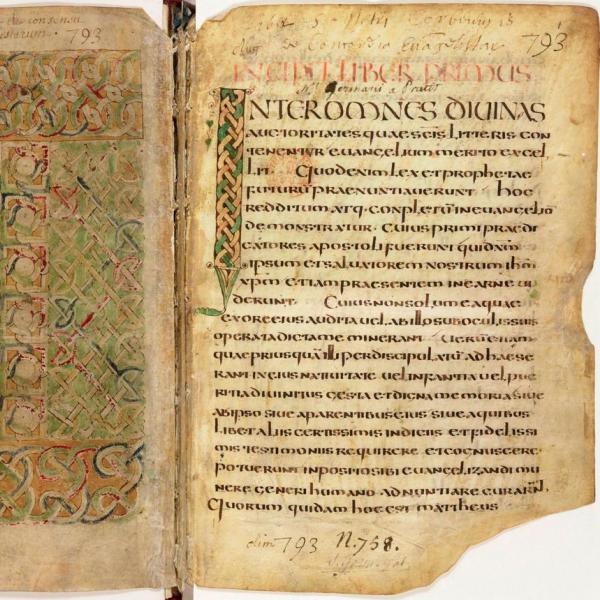 de consensu
793
793
de Concordia Evangelistar.
INCIPIT LIBER PRIMUS
S. Germani a Pratis
INTER OMNES DIVINAS
AUCTORITATES QUAE SCIS LITTERIS CON
TENENTUR EUANGELIUM MERITO EXCEL
LIT. QUOD ENIM LEX ET PROPHETAE
FUTURU PRAENUNTIAUERUNT HOC
REDDITUM ATQ. CONPLETU IN EUANGELIO
DEMONSTRATUR. CUIUS PRIMI PRAEDI
CATORES APOSTOLI FUERUNT QUI DNM
IPSUM ET SALUATOREM NOSTRUM IHM
XPM ETIAM PRAESENTEM IN CARNE UI
DERUNT. CUIUS NON SOLUM EA QUAE
EX ORE EIUS AUDITA UEL AB ILLO SUB OCULIS SUIS
OPERATA DICTA MEMINERANT UERUM ETIAM
QUAE PRIUSQUA ILLI PER DISCIPULATU ADHAESE
RANT IN EIUS NATIUITATE UEL INFANTIA UEL PUE
RITIA DIUINITUS GESTA ET DIGNA MEMORIA SIUE
AB IPSO SIUE A PARENTIBUS EIUS SIUE A QUIBUS
LIBET ALIIS CERTISSIMIS INDICIIS ET FIDELISSI
MIS TESTIMONIIS REQUIRERE ET COGNUSCERE
POTUERUNT INPOSITO SIBI EUANGELIZANDI MU
NERE GENERI HUMANO ADNUNTIARE CURARN.
QUORUM QUIDAM HOC EST MATTHEUS
olim 793 N. 758.